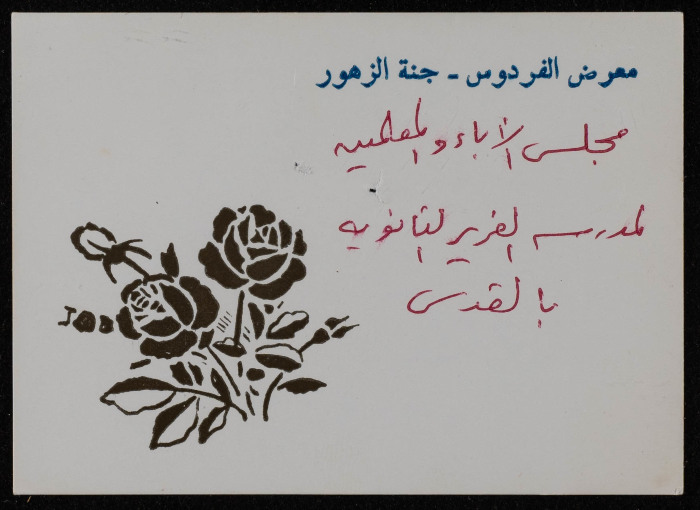 معرض الفردوس - جنة الزهور
مجلس الآباء والمعلمين
لمدرسه الفرير الثانويه
بالقدس
JOB